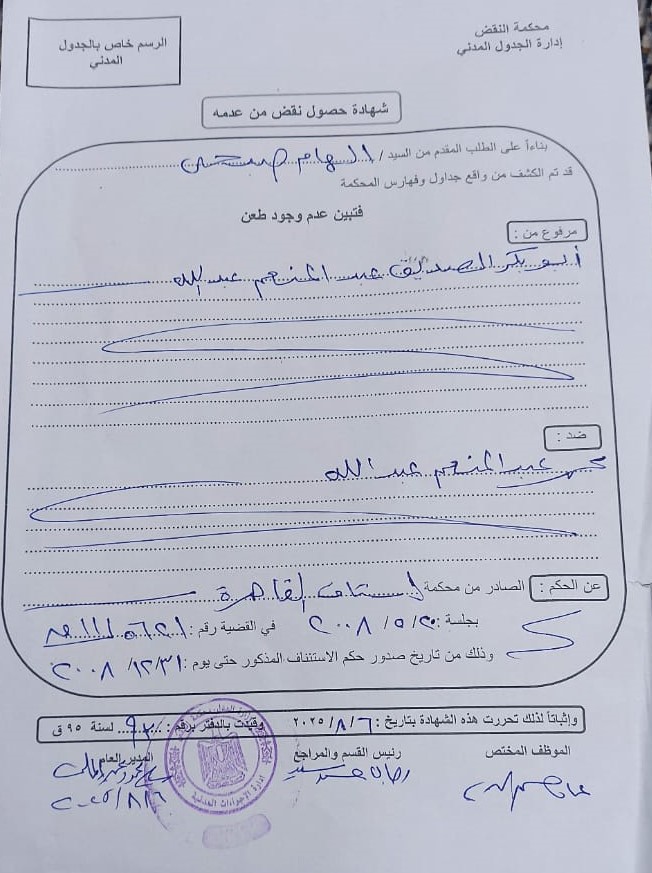 محكمة النقض
إدارة الجدول المدني
الرسم خاص بالجدول
المدني
شهادة حصول نقض من عدمه
بناءاً على الطلب المقدم من السيد / الهام صبحى
قد تم الكشف من واقع جداول وفهارس المحكمة
فتبين عدم وجود طعن
مرفوع من :
أبو بكر الصديق عبد المنعم عبد الله
ضد :
عبد المنعم عبد الله
عن الحكم : الصادر من محكمة استئناف القاهرة
بجلسة : ٢٠/ ٥/ ٢٠٠٨ في القضية رقم :
وذلك من تاريخ صدور حكم الاستئناف المذكور حتى يوم : ٣١/ ١٢/ ٢٠٠٨
وإثباتاً لذلك تحررت هذه الشهادة بتاريخ : ٦/ ٨/ ٢٠٢٥ وقيدت بالدفتر برقم : لسنة ٩٥ ق
الموظف المختص رئيس القسم والمراجع المدير العام
٢٠٢٥/٨/٦
إدارة الإجراءات المدنية